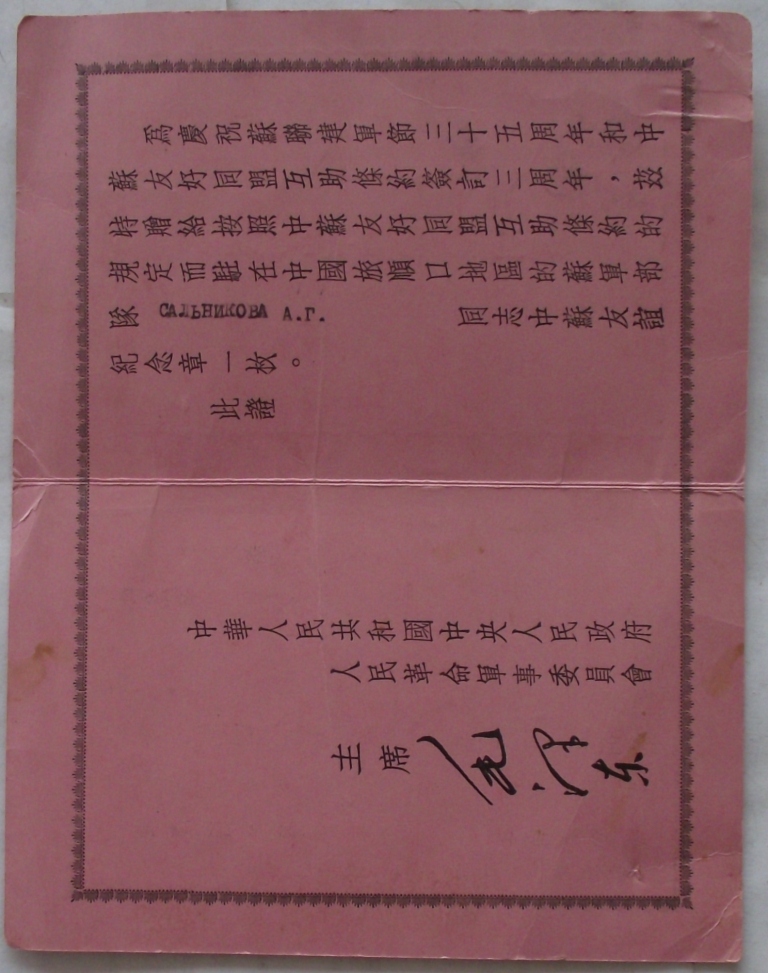 為慶祝蘇聯建軍節三十五周年和中
蘇友好同盟互助條約簽訂三周年，茲
特贈給按照中蘇友好同盟互助條約的
規定而駐在中國旅順口地區的蘇軍部
隊 САЛЬНИКОВА А.Г. 同志中蘇友誼
紀念章一枚。
此證
中華人民共和國中央人民政府
人民革命軍事委員會
主席 毛澤东